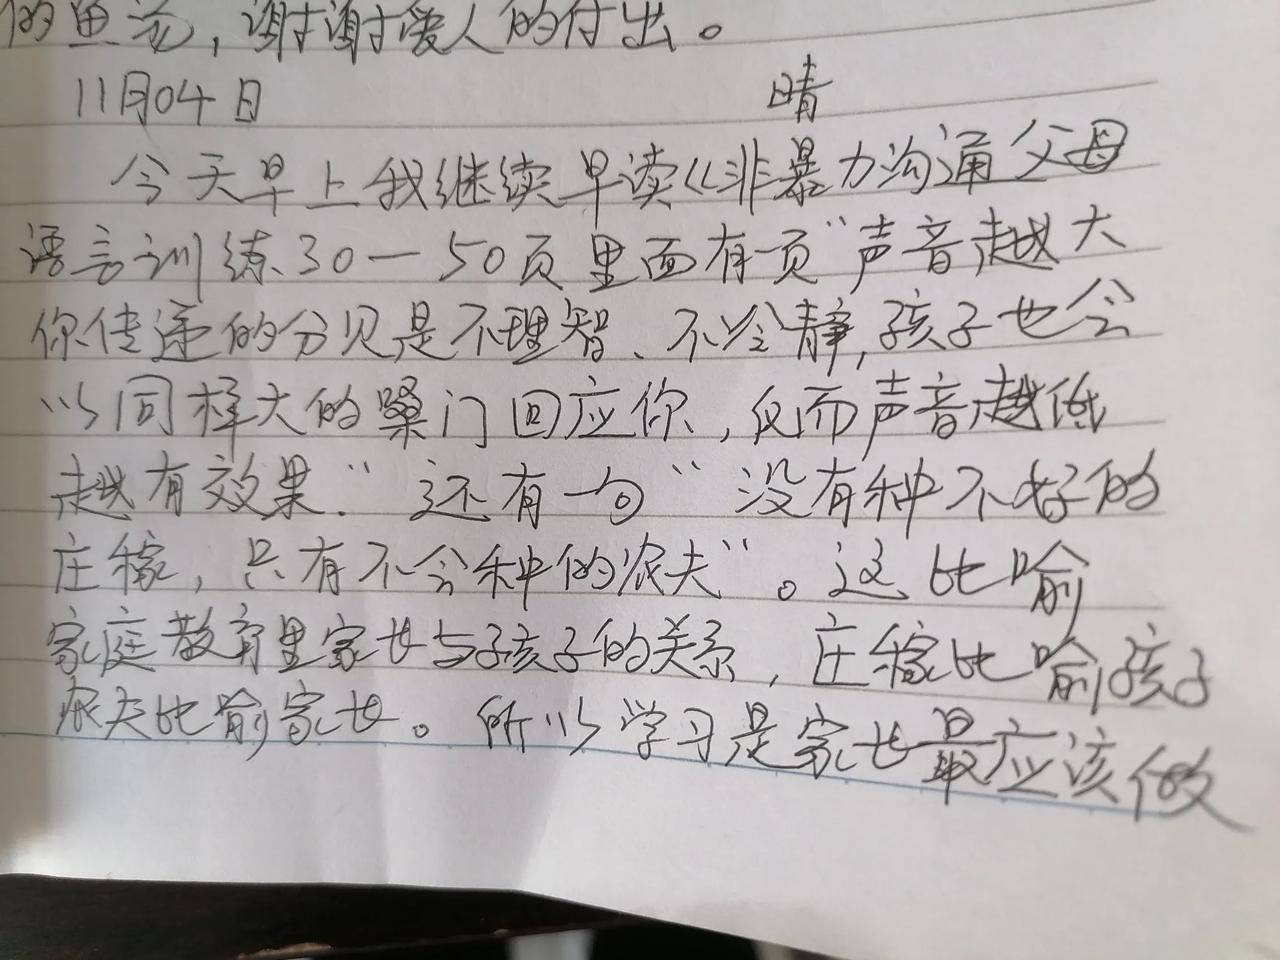 的鱼汤，谢谢爱人的付出。
11月04日 晴
今天早上我继续早读《非暴力沟通父母
语言训练30一50页里面有一页“声音越大
你传递的分贝是不理智、不冷静,孩子也会
以同样大的嗓门回应你，反而声音越低
越有效果.“还有一句“没有种不好的
庄稼，只有不会种的农夫”。这比喻
家庭教育里家长与孩子的关系，庄稼比喻孩子
农夫比喻家长。所以学习是家长最应该做